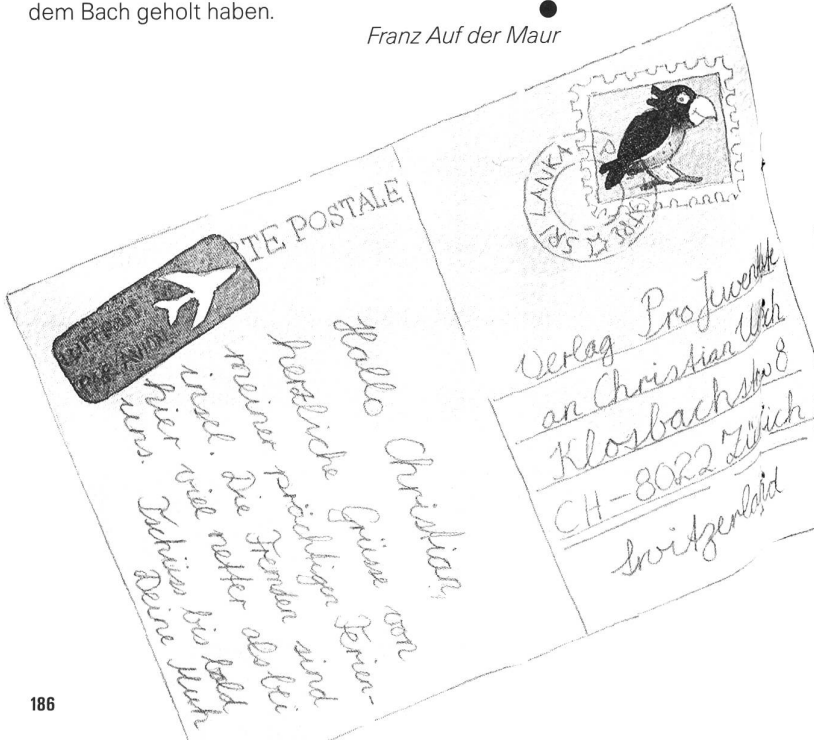 dem Bach geholt haben.
Franz Auf der Maur
LUFTPOST
PAR AVION
TE POSTALE
SRI LANKA
Hallo Christian,
herzliche Grüsse von
meiner prächtigen Ferien-
insel. Die Fremden sind
hier viel netter als bei
uns. Tschüss bis bald
Deine
Verlag Pro Juventute
an Christian
8
CH-8022 Zürich
Switzerland
186